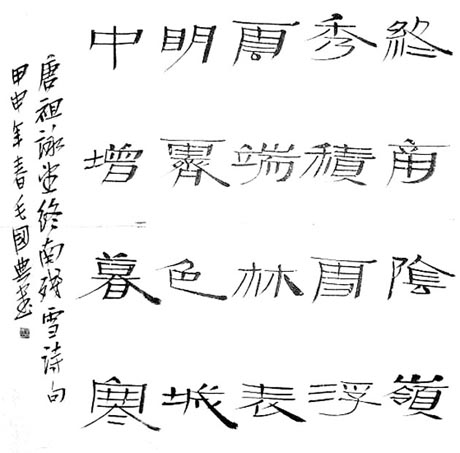 終南陰嶺
秀積雪浮
雲端林表
明霽色城
中增暮寒
唐祖詠望終南残雪詩句
甲申年春毛國典書